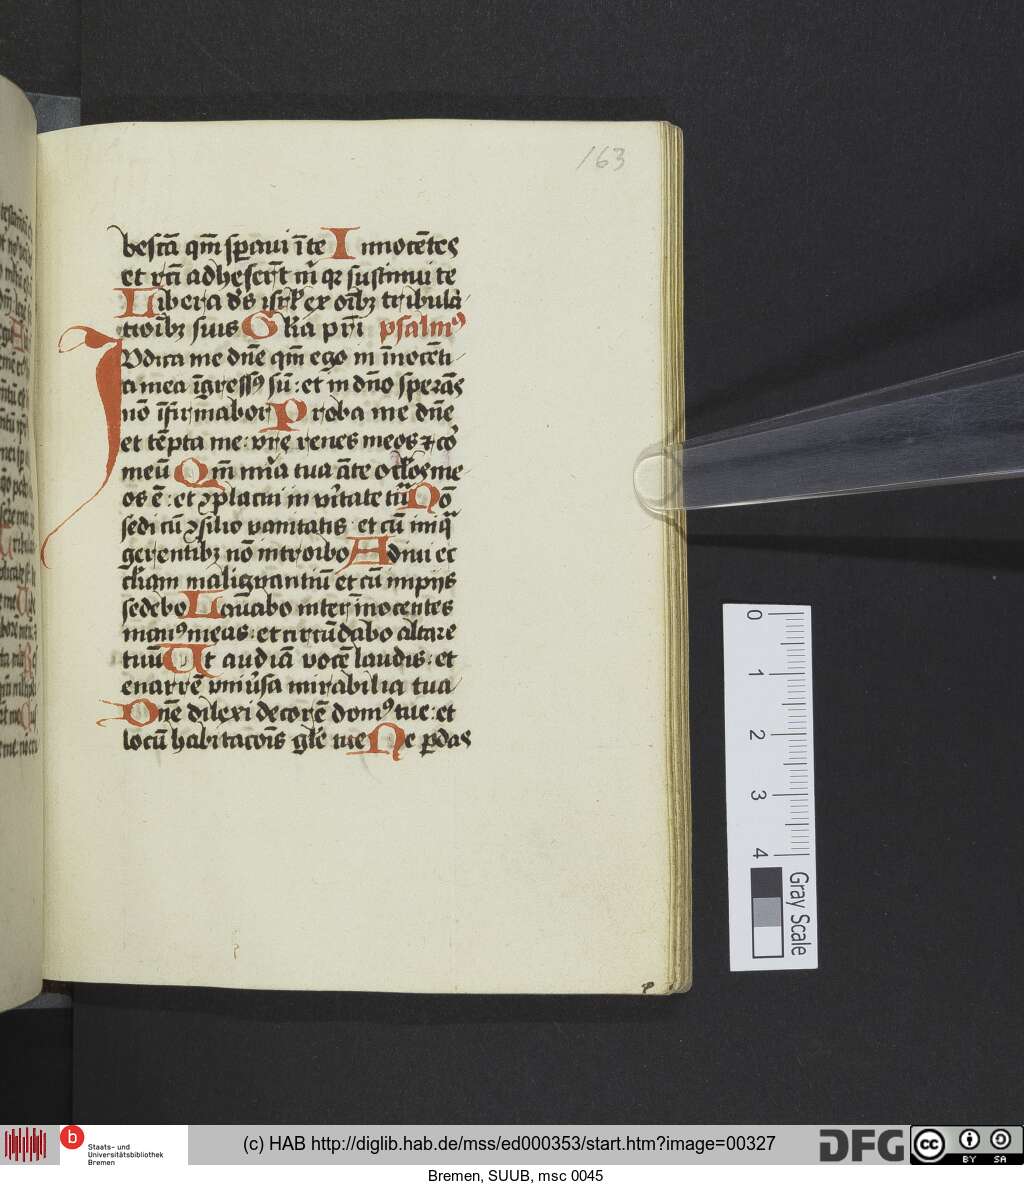 163
bescā qm̄ sꝑaui ī te Innocētes
et rc̄ti adheſerūt m̄ qꝛ ſuſtinui te
Libera dˢ iſrl̄ ex oībꝫ tribula
tioībꝫ ſuis Glīa pr̄i psalmꝰ
Iudica me dn̄e qm̄ ego in īnocēti
a mea īgreſſꝰ ſū : et in dn̄o ſperās
nō īfirmabor Proba me dn̄e
et tēpta me : vre renes meos ⁊ co᷑
meū Qm̄ mīa tua āte oclos me
os ē : et ꝯplacui in vītate tua Nō
ſedi cū ꝯſilio vanitatis : et cū iniq̄
gerentibꝫ nō introibo Adiui ec
cl̄iam malignantiū et cū impijs
ſedebo Lauabo inter īnocentes
manꝰ meas : et circūdabo altare
tuū Ut audiā vocē laudis : et
enarrē vniūſa mirabilia tua
Dn̄e dilexi decorē domꝰ tue : et
locū habitacōis gl̄e tue Ne ꝑdas
0
1
2
3
4
Gray Scale
b
Staats- und
Universitätsbibliothek
Bremen
(c) HAB http://diglib.hab.de/mss/ed000353/start.htm?image=00327
DFG
cc
BY SA
Bremen, SUUB, msc 0045